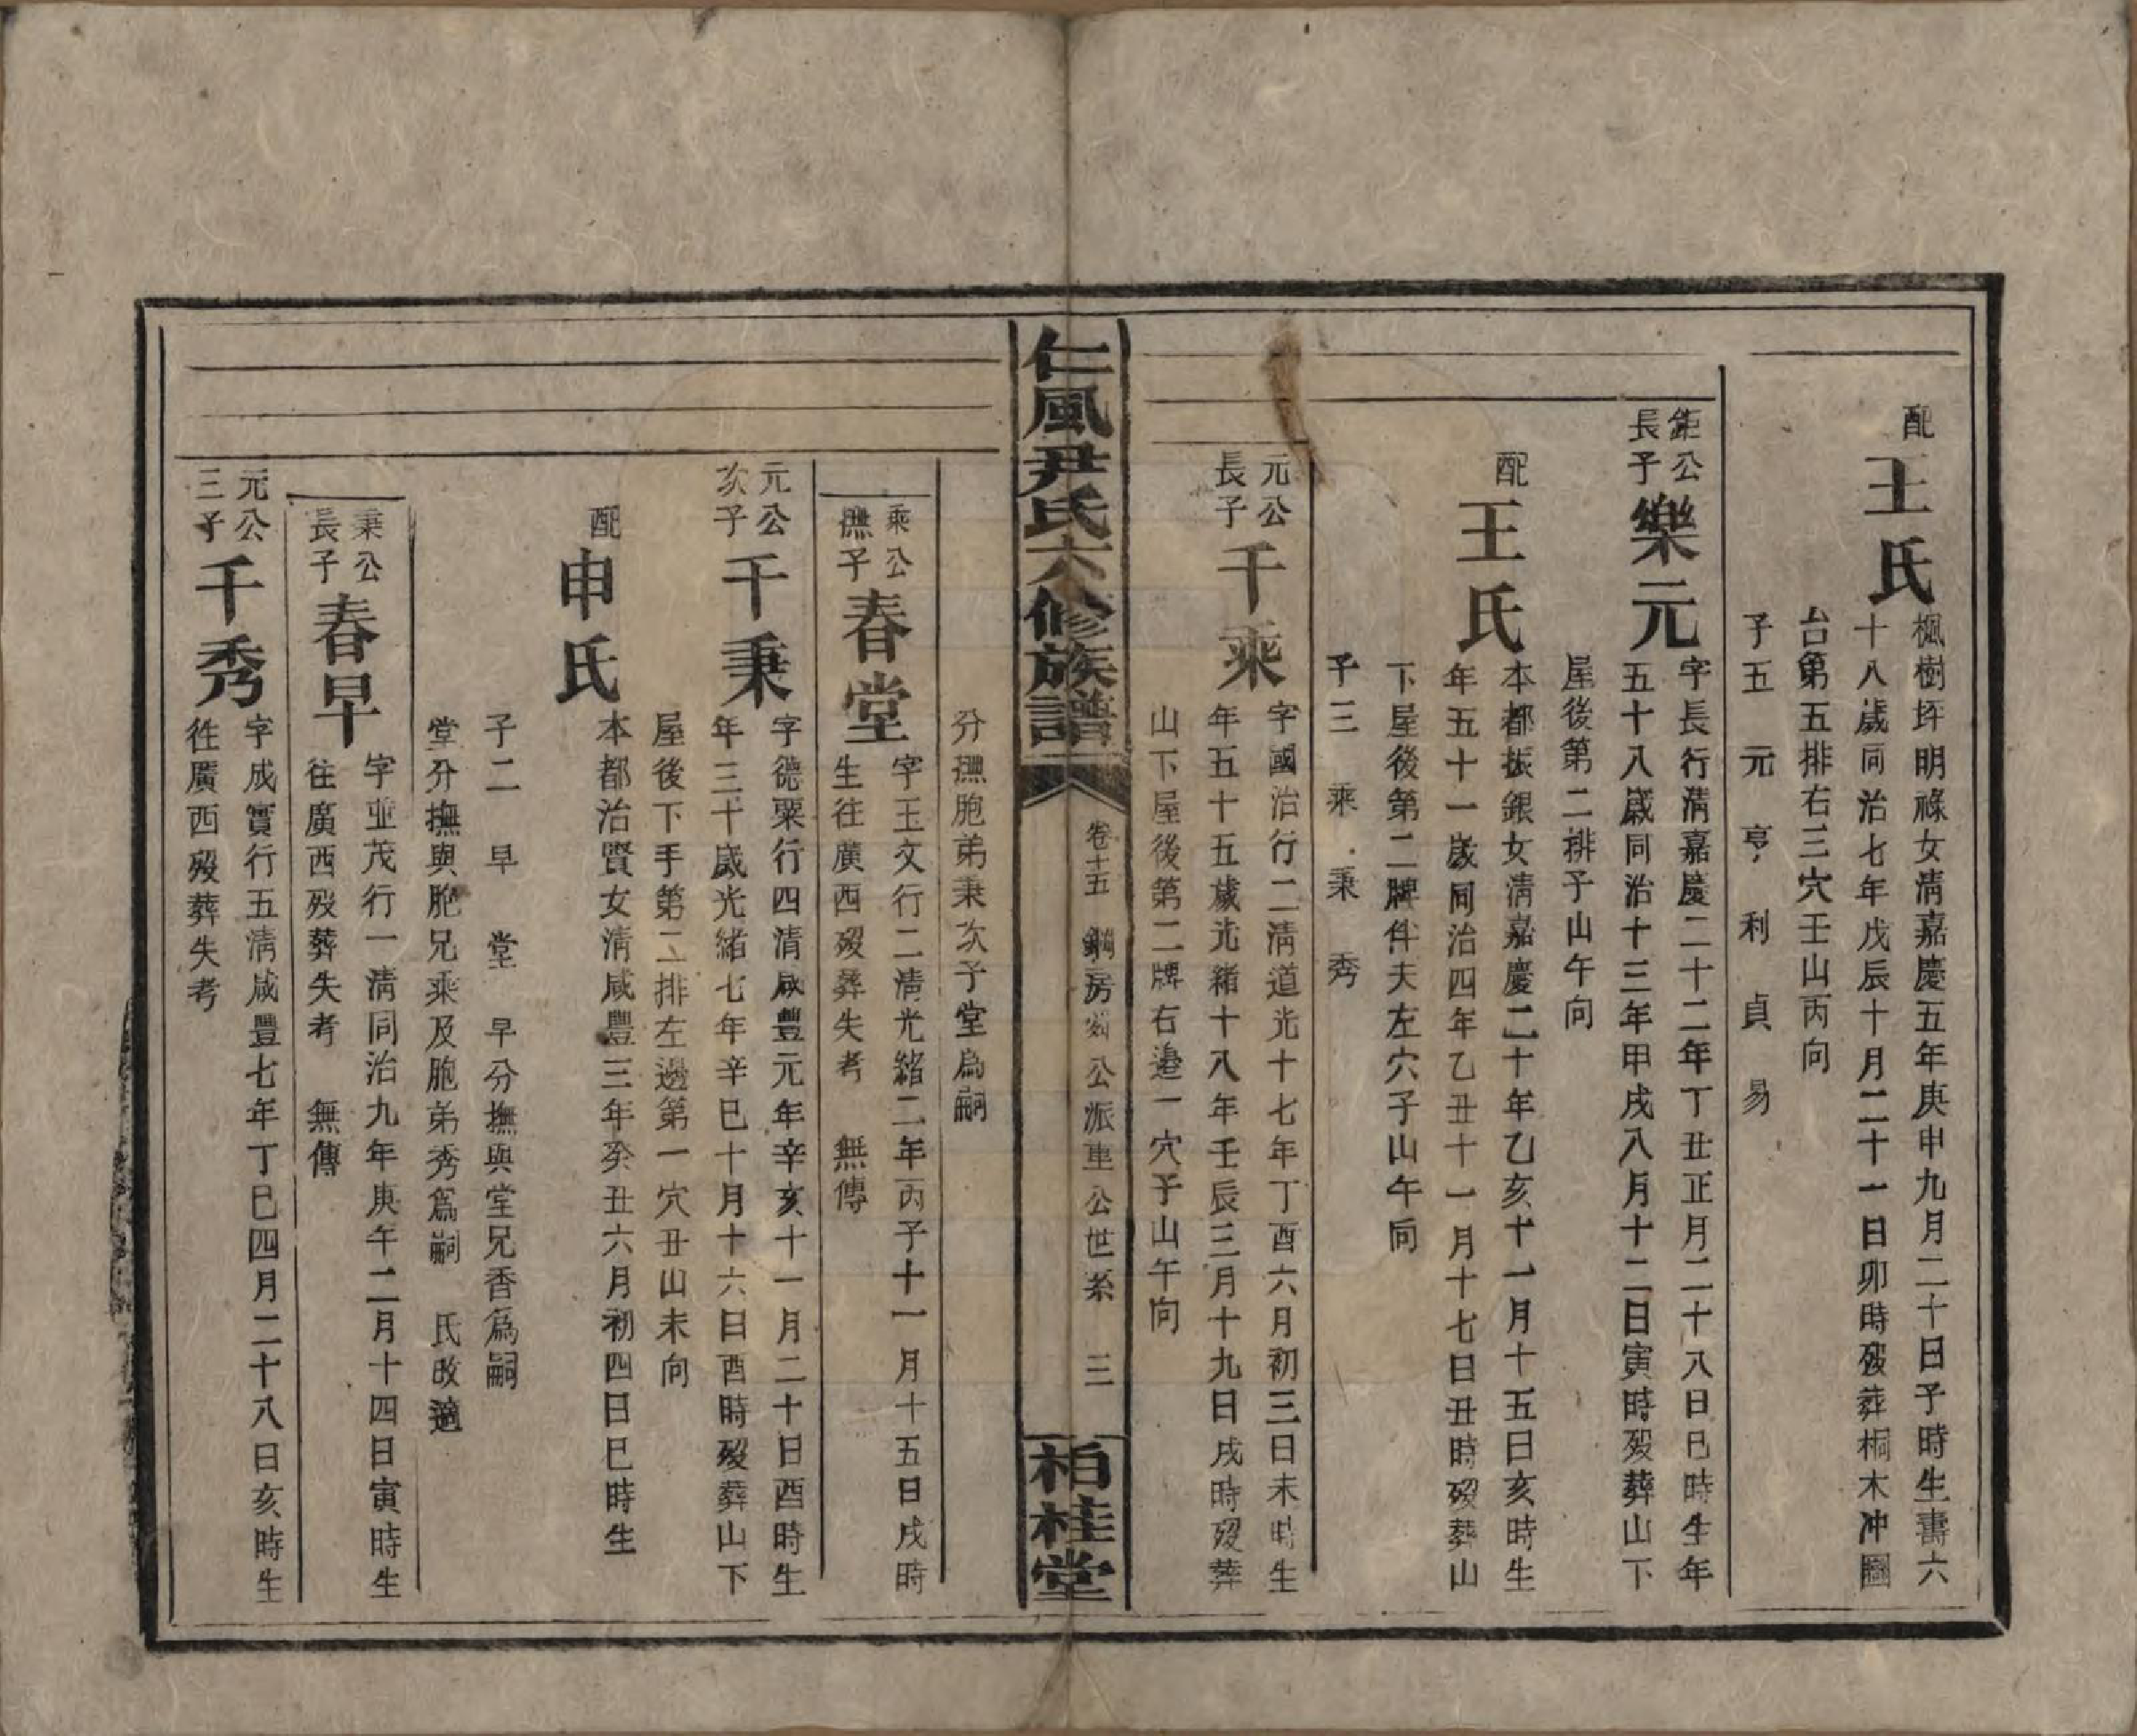 配
王氏
楓樹坪明祿女淸嘉慶五年庚申九月二十日子時生壽六
十八歲同治七年戊辰十月二十一日卯時歿葬桐木冲圖
台第五排右三穴壬山丙向
子五 元 亨 利 貞 易
鉅公
長子
樂元
字長行淸嘉慶二十二年丁丑正月二十八日巳時生年
五十八歲同治十三年甲戌八月十二日寅時歿葬山下
屋後第二排子山午向
配
王氏
本都振銀女淸嘉慶二十年乙亥十一月十五日亥時生
年五十一歲同治四年乙丑十一月十七日丑時歿葬山
下屋後第二牌伴夫左穴子山午向
子三 乘 秉 秀
元公
長子
千乘
字國治行二淸道光十七年丁酉六月初三日未時生
年五十五歲光緒十八年壬辰三月十九日戌時歿葬
山下屋後第二牌右邊一穴子山午向
仁風尹氏六修族譜
卷十五 鋼房 公派 公世系 三
柏桂堂
分撫胞弟秉次子堂爲嗣
乘公
撫子
春堂
字玉文行二淸光緒二年丙子十一月十五日戌時
生往廣西歿葬失考 無傳
元公
次子
千秉
字德粟行四淸咸豐元年辛亥十一月二十日酉時生
年三十歲光緒七年辛巳十月十六日酉時歿葬山下
屋後下手第二排左邊第一穴丑山未向
配
申氏
本都治賢女淸咸豐三年癸丑六月初四日巳時生
子二 早 堂 早分撫與堂兄香爲嗣
堂分撫與胞兄乘及胞弟秀爲嗣 氏改適
秉公
長子
春早
字並茂行一淸同治九年庚午二月十四日寅時生
往廣西歿葬失考 無傳
元公
三子
千秀
字成實行五淸咸豐七年丁巳四月二十八日亥時生
徃廣西歿葬失考